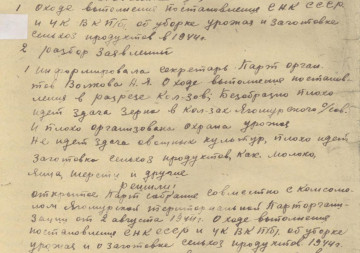 1 О ходе выполнения постановления СНК СССР
и ЦК ВКП/б, об уборке урожая и заготовке
сельхоз продуктов в 1944г.
2 разбор Заявлений
1 Информировала секретарь Парт орган
тов Волкова Н.Я. О ходе выполнения постанов-
ления в разрезе Кол-зов; Безобразно плохо
идет здача Зерна в Кол-зах Ягомурского С/сов.
И плохо организована охрана урожая
Не идет здача овощных культур, плохо идет
Заготовка сельхоз продуктов, как молоко,
Яица, шерсть и другие
Решили:
открытое Парт собрание совместно с комсомо-
лом Ягомурской территориальной Парторгани-
зации от 2 августа 1944г. О ходе выполнения
постановления СНК СССР и ЦК ВКП/б, об уборке
урожая и о заготовке сельхоз продуктов 1944г.